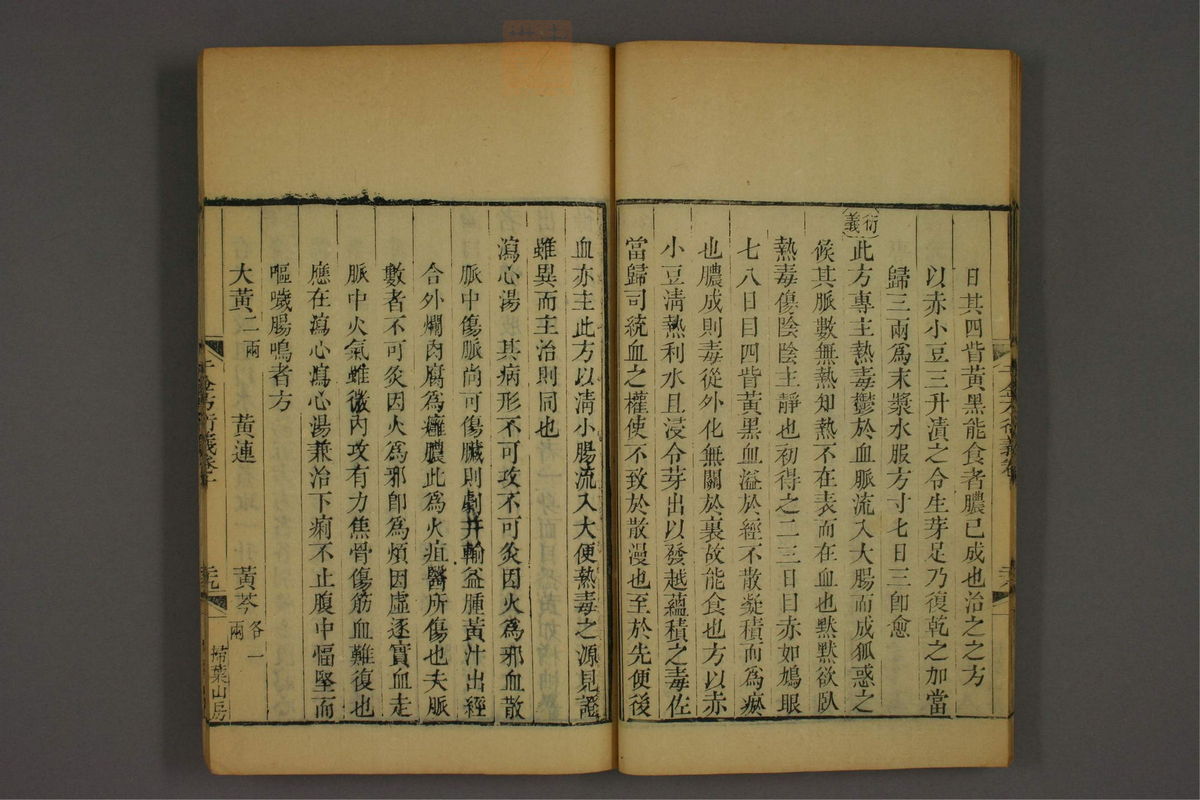 日其四眥黃黑能食者膿已成也治之之方
以赤小豆三升漬之令生芽足乃復乾之加當
歸三兩爲末漿水服方寸匕日三卽愈
衍義
此方專主熱毒鬱於血脈流入大腸而成狐惑之
候其脈數無熱知熱不在表而在血也黙黙欲臥
熱毒傷陰陰主靜也初得之二三日目赤如鳩眼
七八日目四眥黃黑血溢於經不散凝積而爲瘀
也膿成則毒從外化無關於裏故能食也方以赤
小豆淸熱利水且浸令芽出以發越蘊積之毒佐
當歸司統血之權使不致於散漫也至於先便後
血亦主此方以淸小腸流入大便熱毒之源見證
雖異而主治則同也
瀉心湯 其病形不可攻不可灸因火爲邪血散
脈中傷脈尚可傷臟則劇井輸益腫黃汁出經
合外爛肉腐爲癰膿此爲火疽醫所傷也夫脈
數者不可灸因火爲邪卽爲煩因虛逐實血走
脈中火氣雖微內攻有力焦骨傷筋血難復也
應在瀉心瀉心湯兼治下痢不止腹中愊堅而
嘔噦腸鳴者方
大黃二兩 黃連 黃芩各一兩
千金方衍義卷一
掃葉山房